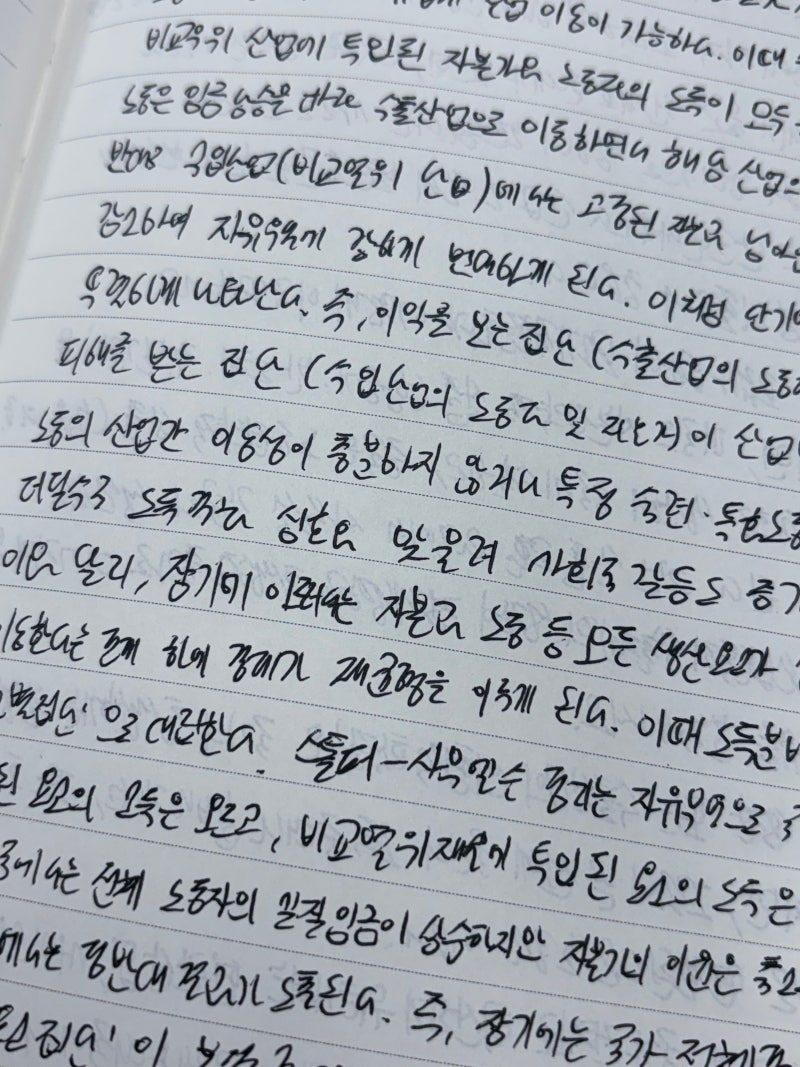 산업 이동이 가능하다. 이때
비교우위 산업에 특인된 자본가와 노동자의 소득이 모두
노동은 임금상승을 따라 수출산업으로 이동하면서 해당 산업의
반대로 수입산업(비교열위 산업)에서는 고정된 자본과 남아있
감소하며 자유무역기 강하게 반대하게 된다. 이처럼 단기에
뚜렷하게 나타난다. 즉, 이익을 보는 집단 (수출산업의 노동
피해를 받는 집단 (수입산업의 노동자 및 자본가)이 산업
노동의 산업간 이동성이 충분하지 않거나 특정 숙련·특화노동
더딜수록 소득격차 심화와 맞물려 사회적 갈등도 증가
이와 달리, 장기에 이르러서는 자본과 노동 등 모든 생산요소가
이동한다는 전제 하에 경제가 재균형을 이루게 된다. 이때 소득분배
으로 대립한다. 스톨퍼-사무엘슨 정리는 자유무역으로
된 요소의 소득은 오르고, 비교열위재화에 특인된 요소의 소득은
국에서는 전체 노동자의 실질임금이 상승하지만 자본가의 이윤은
에서는 정반대 결과가 도출된다. 즉, 장기에는 국가 전체
요소집단'이